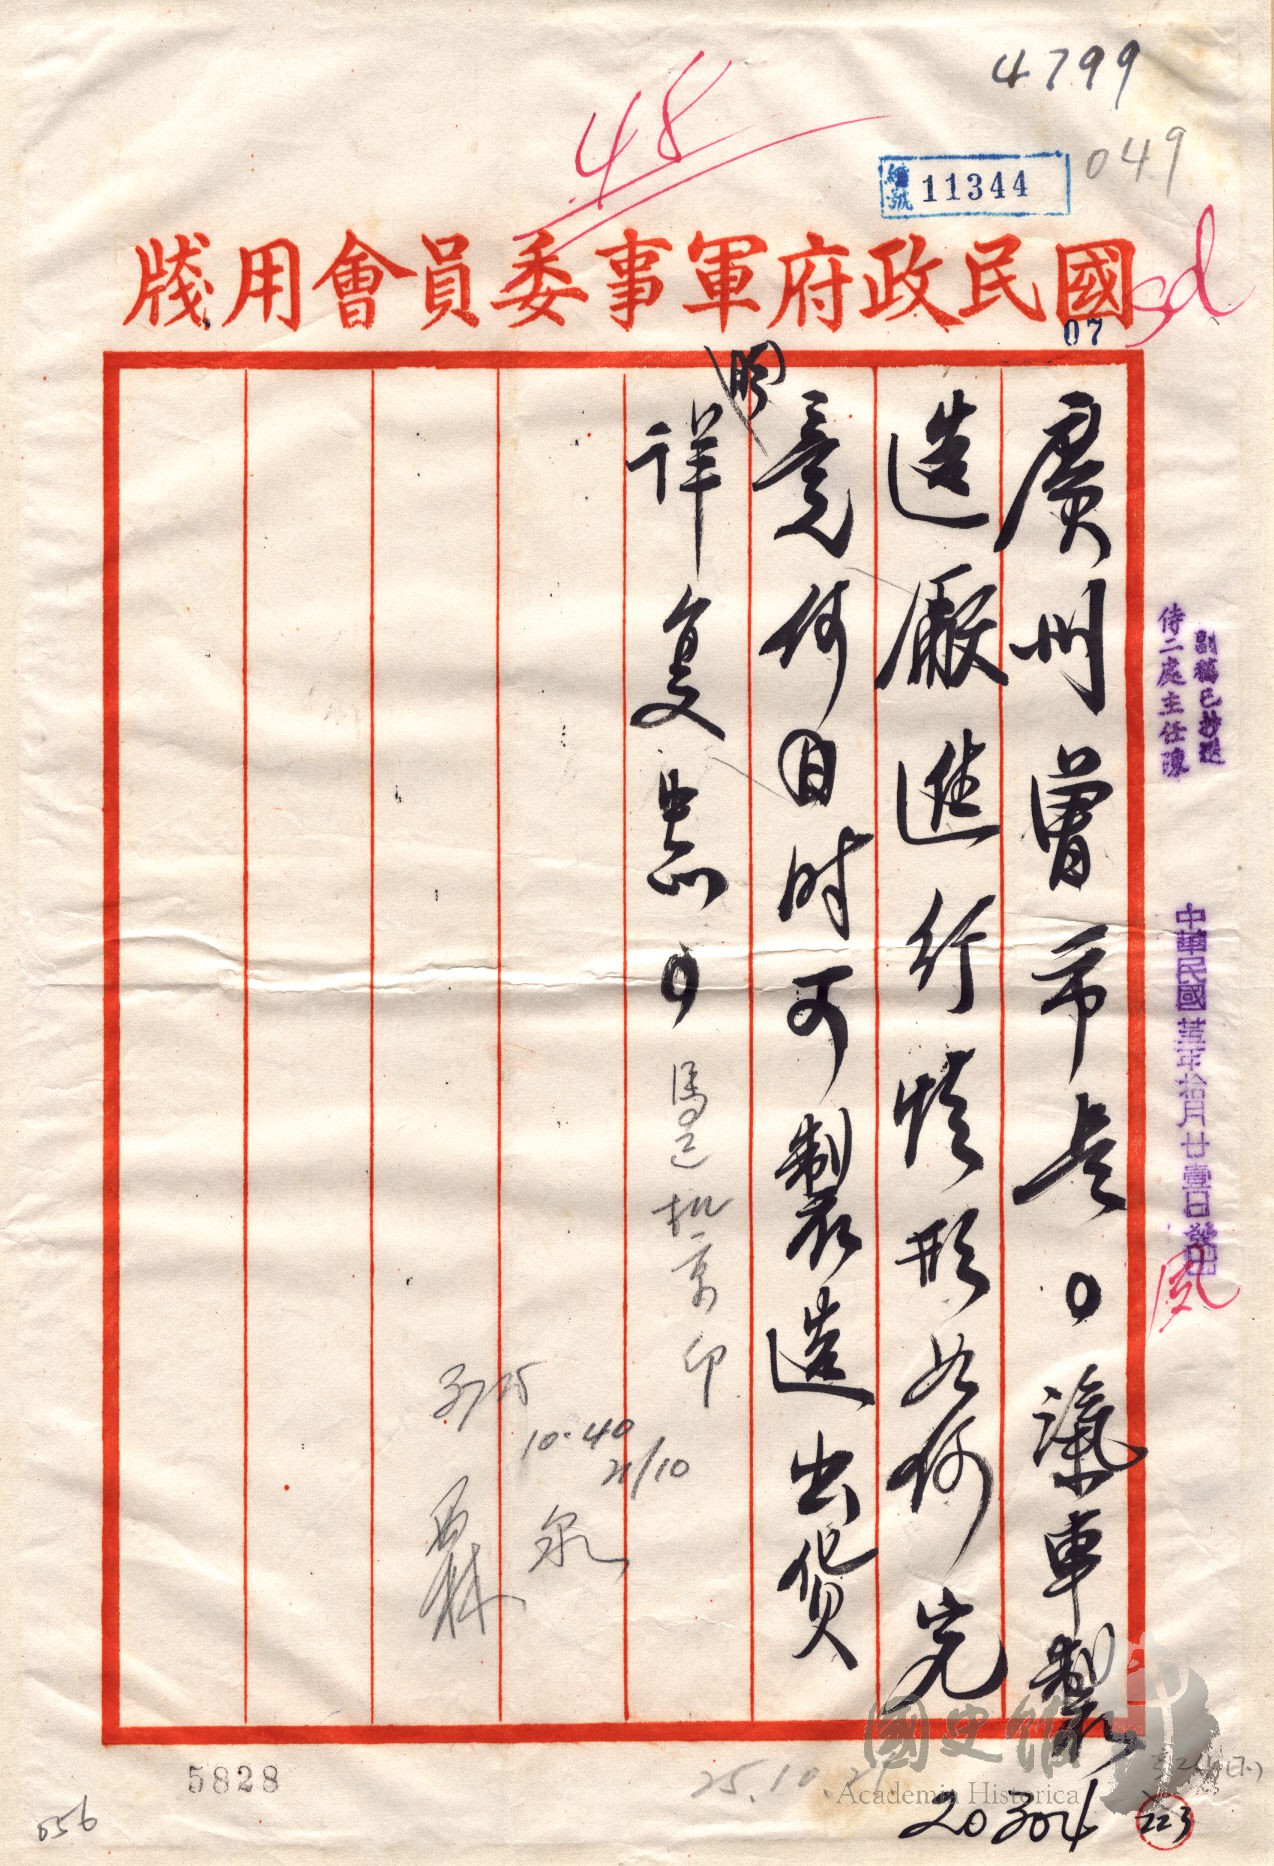 4799
049
48
編號 11344
國民政府軍事委員會用牋
07
廣州曾市長。汽車製
造廠進行情形如何完
竟何日時可製造出貨
明
詳复忠。馬巳机京印
10.40
21/10
副稿已抄送
侍二處主任陳
中華民國廿五年拾月廿壹日發出
5828
056
25.10.21
國史館
Academia Historica
20304
223